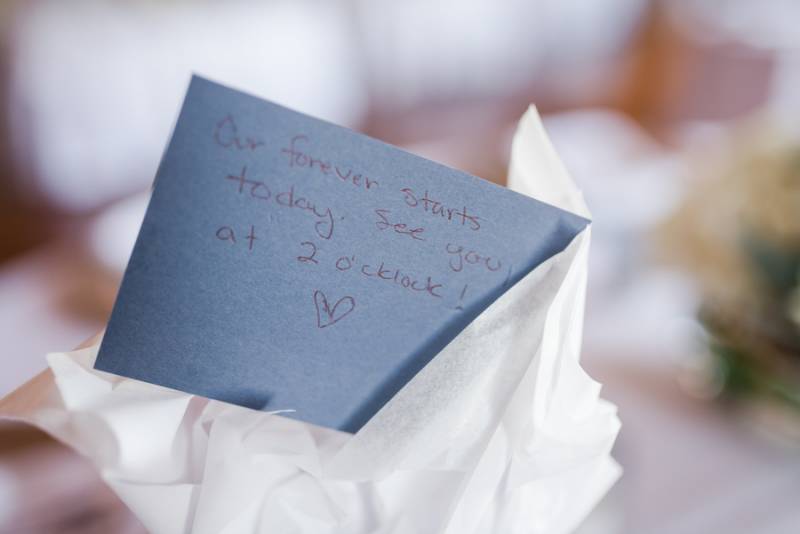 Our forever starts
today. See you
at 2 o'cklock!